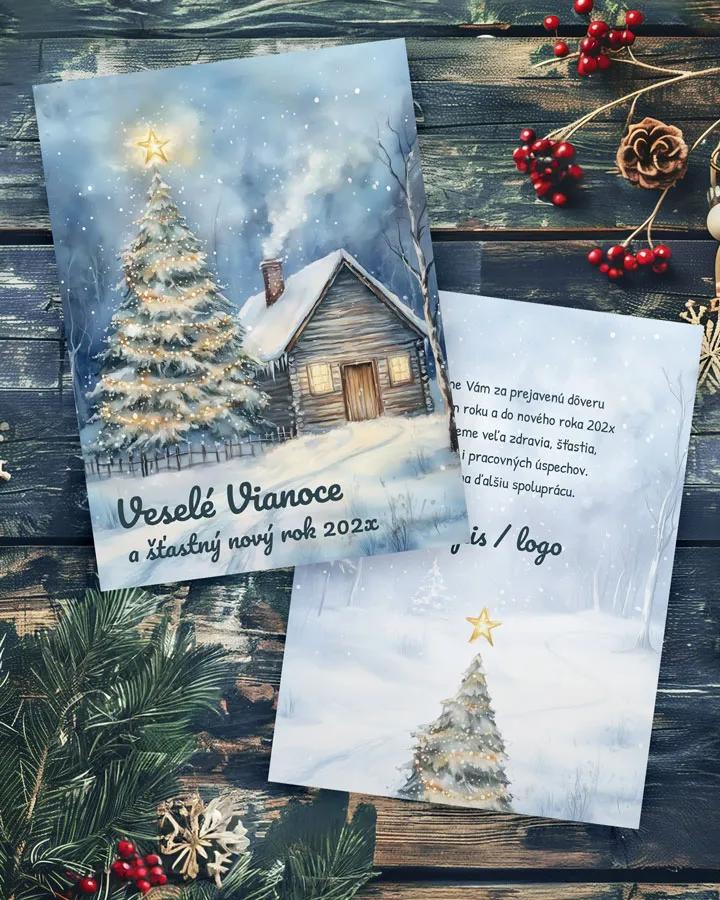 Veselé Vianoce
a šťastný nový rok 202x
Vám za prejavenú dôveru
roku a do nového roka 202x
veľa zdravia, šťastia,
i pracovných úspechov.
ďalšiu spoluprácu.
/ logo